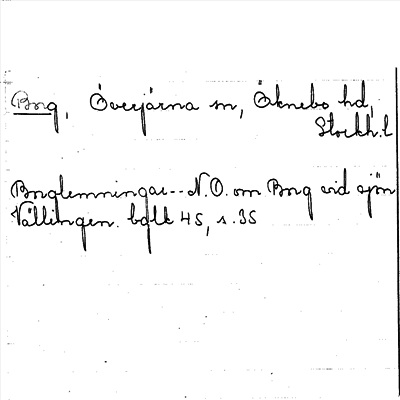 Borg, Överjärna sn, Öknebo hd,
Stockh.l
Borglemningar-- N.O. om Borg vid sjön
Vällingen. bglt 45, s. 35